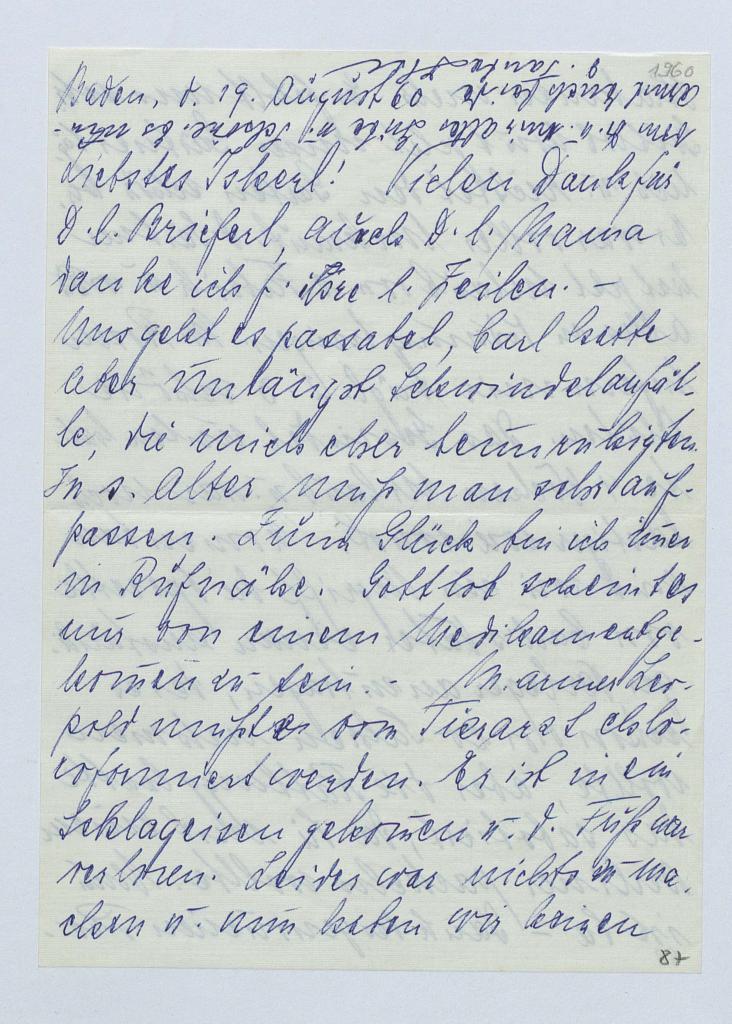 1960
Baden, d. 19. August 60
Liebstes Iskerl! Vielen Dank für
D. l. Brieferl, auch D. l. Mama
danke ich f. ihre l. Zeilen. –
Uns geht es passabel, Carl hatte
aber unlängst Schwindelanfäl-
le, die mich eher beunruhigten.
In s. Alter muß man sehr auf-
passen. Zum Glück bin ich im̄er
in Rufnähe. Gottlob scheint es
nur von einem Medikament ge-
kom̄en zu sein. – Unser Leo-
pold mußte vom Tierarzt chlo-
roformiert werden. Er ist in ein
Schlageisen gekom̄en u. d. Fuß war
verloren. Leider war nichts zu ma-
chen u. nun haben wir keinen
87
umarmt euch Tante
Dir u. u. alles Gute u. Schöne. Es